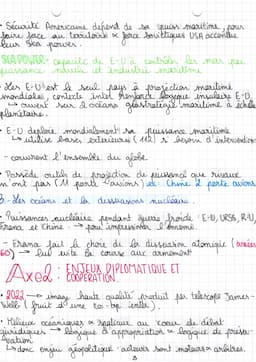 • Sécurité Américaine dépend de sa puiss maritime, pour
faire face au territoire & force soviétiques USA accentue
leur Sea power.
SEA POWER: capacité de E-U à contrôler les mers peu
puissance navale et industrie maritime
• Les E-U est le seul pays à projection maritime
mondiales, contexte intel renforce logique insulaire E-U,
→ ouvert sur 2 océans géostratégie maritime à échelle
planétaire.
• E-U déploie mondialement sa puissance maritime
→ utilise bases extérieures (112) & besoins d'intervention
- couvrent l'ensemble du globe
• Possède outils de projection de puissance que rivaux
n'ont pas (11 porte-avions) et Chine 2 porte avions
3- Les océans et la dissuasion nucléaire.
• Puissances nucléaire pendant guerre froide: E-U, URSS, R-U,
France et Chine → pour impressionner l'ennemi.
- France fait le choix de la dissuasion atomique (années
60) → lui évite la course aux armement
Axe 2: ENJEUX DIPLOMATIQUE ET
COOPÉRATION.
• 2022 → image haute qualité produit par télescope James-
Webb (fruit d'une co-op inter).
• Milieux océaniques & spatiaux au cœur de débat
juridiques → logique d'appropriation & logique de préser-
vation
→ donc enjeu géopolitique acteurs sont moteurs & arbitres.